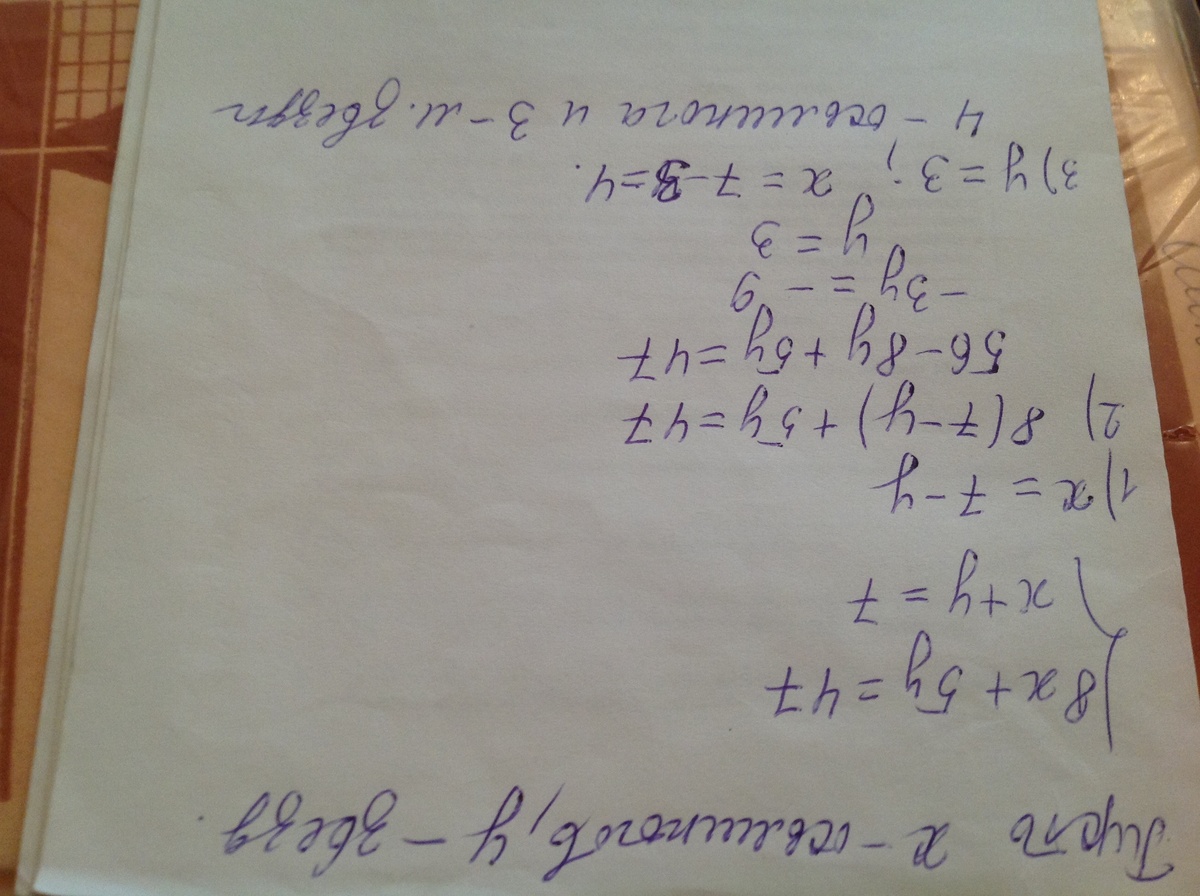 Пусть x - осьминогов, y - звезд.
8x + 5y = 47
x + y = 7
1) x = 7 - y
2) 8(7 - y) + 5y = 47
56 - 8y + 5y = 47
-3y = -9
y = 3
3) y = 3; x = 7 - 3 = 4.
4 - осьминога и 3 - м. звезды